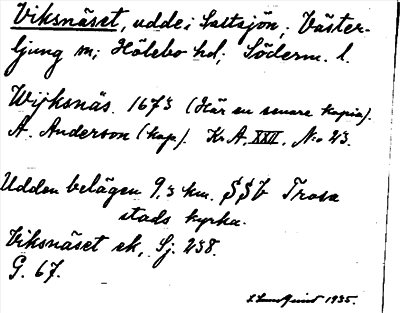 Viksnäset, udde i Saltsjön; Väster-
ljung sn; Hölebo hd; Söderm. l.
Wijksnäs. 1673 (Här en senare kopia).
A. Anderson (kap.). K. A. XXII, No 23.
Udden belägen 9,3 km. SSV Trosa
stads kyrka.
Viksnäset ek, Sj. 238.
G. 67.
1935.